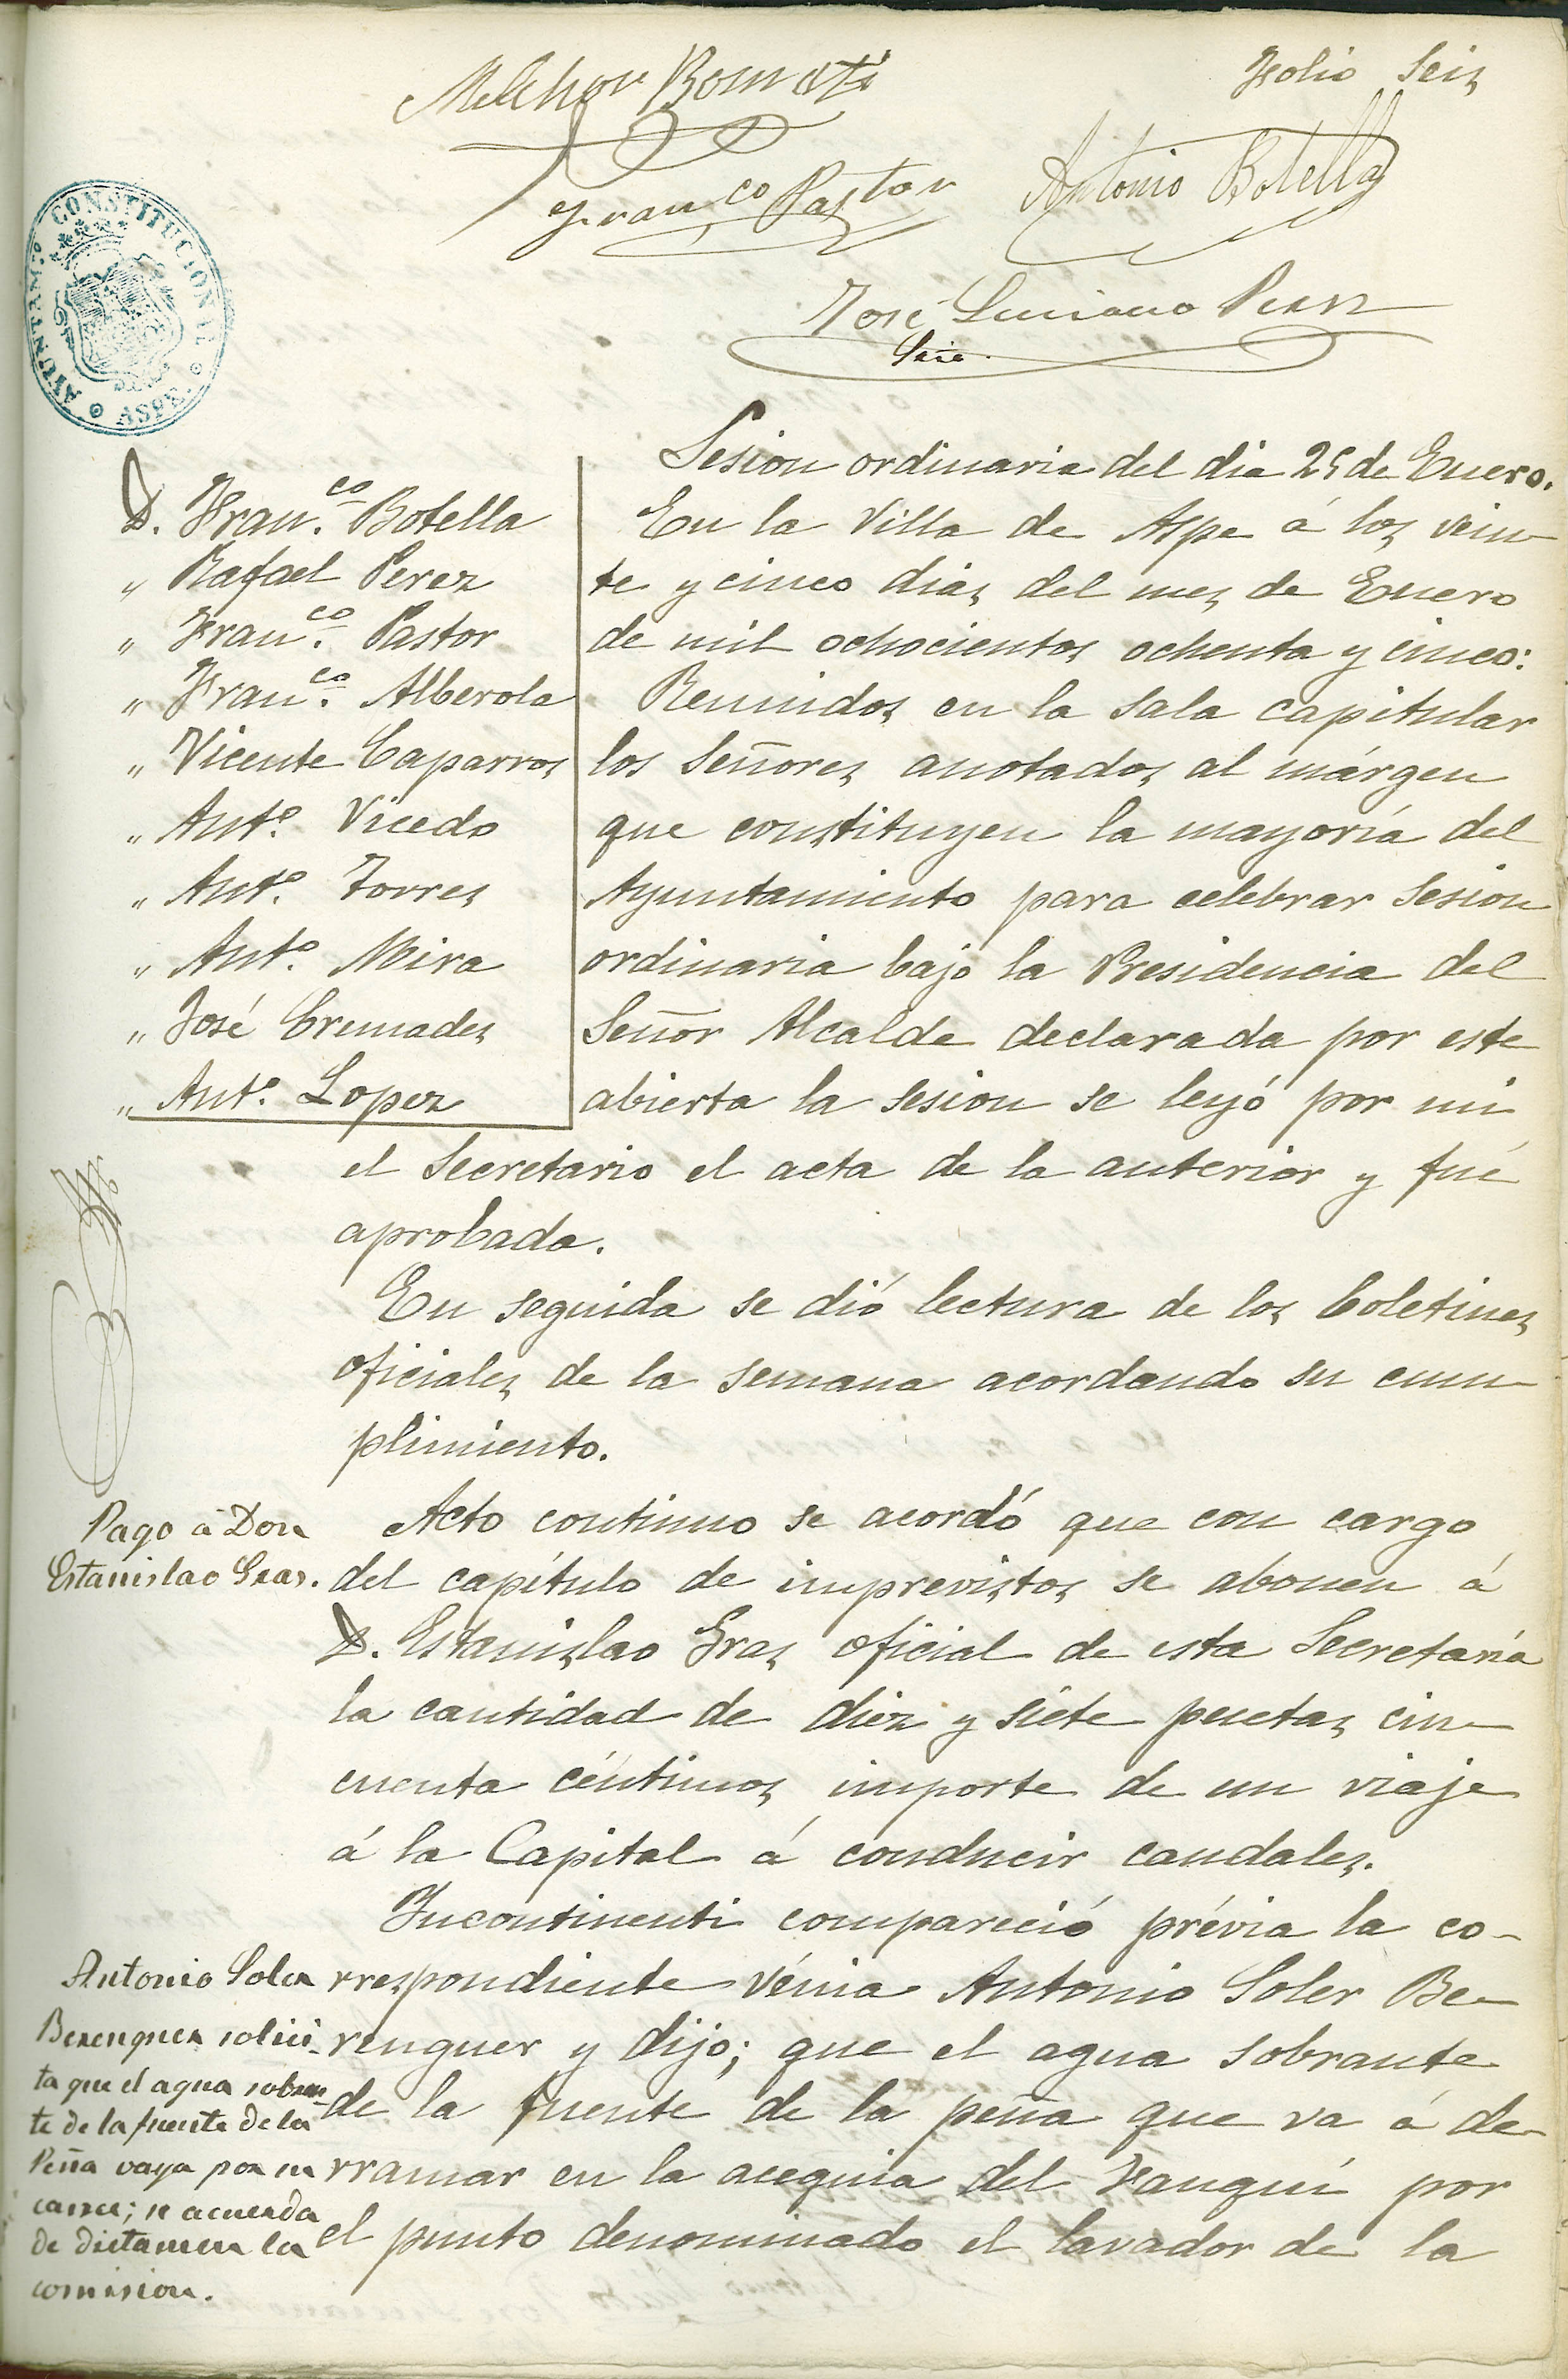 Folio Seis
Melchor Bonmatí
Franco Pastor
Antonio Botella
José Luciano Perez
Srio.
AYUNTAM.º CONSTITUCIONAL
ASPE
Sesion ordinaria del dia 25 de Enero.
D. Fran.co Botella
„ Rafael Perez
„ Fran.co Pastor
„ Fran.co Alberola
„ Vicente Caparros
„ Ant.o Vicedo
„ Ant.o Torres
„ Ant.o Mira
„ José Cremades
„ Ant.o Lopez
En la Villa de Aspe á los vein-
te y cinco dias del mes de Enero
de mil ochocientos ochenta y cinco:
Reunidos en la sala capitular
los Señores anotados al márgen
que constituyen la mayoría del
Ayuntamiento para celebrar Sesion
ordinaria bajo la Presidencia del
Señor Alcalde declarada por este
abierta la sesion se leyó por mi
el Secretario el acta de la anterior y fué
aprobada.
En seguida se dió lectura de los boletines
oficiales de la semana acordando su cum-
plimiento.
Pago á Don
Estanislao Gras.
Acto continuo se acordó que con cargo
del capítulo de imprevistos se abonen á
D. Estanislao Gras oficial de esta Secretaría
la cantidad de diez y siete pesetas cin-
cuenta céntimos importe de un viaje
á la Capital á conducir caudales.
Antonio Soler
Berenguer solici-
ta que el agua sobran-
te de la fuente de la
Peña vaya por su
cauce; se acuerda
de dictamen la
comision.
Incontinenti compareció prévia la co-
rrespondiente vénia Antonio Soler Be-
renguer y dijo; que el agua sobrante
de la fuente de la peña que va á de-
rramar en la acequia del Fanquí por
el punto denominado el lavador de la